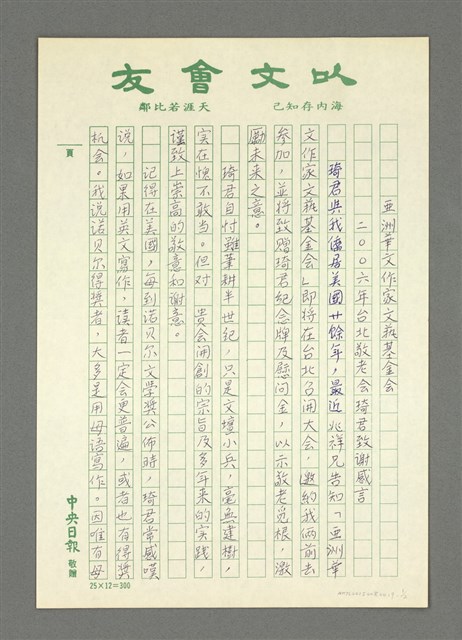 以文會友
海內存知己
天涯若比鄰
亞洲華文作家文藝基金会
二〇〇六年台北敬老会琦君致谢感言
琦君與我僑居美國廿餘年，最近兆祥兄告知「亞洲華
文作家文藝基金会」即將在台北召開大会，邀約我俩前去
参加，並将致赠琦君紀念牌及慰问金，以示敬老觅根，激
勵未来之意。
琦君自忖雖筆耕半世纪，只是文壇小兵，毫無建樹，
实在愧不敢当。但对 貴会開創的宗旨及多年来的实践，
谨致上崇高的敬意和谢意。
记得在美國，每到诺贝尔文学奖公佈時，琦君常感嘆
说，如果用英文寫作，读者一定会更普遍，或者也有得奖
机会。我说诺贝尔得奖者，大多是用母语寫作。因唯有母
頁
中央日報 敬贈
25×12=300